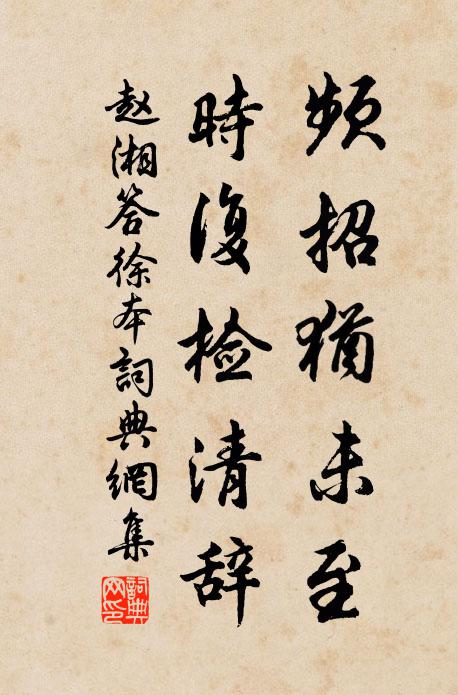 频招猶未至
時復检清辞
赵湘答徐本詞典網集
詞典网印